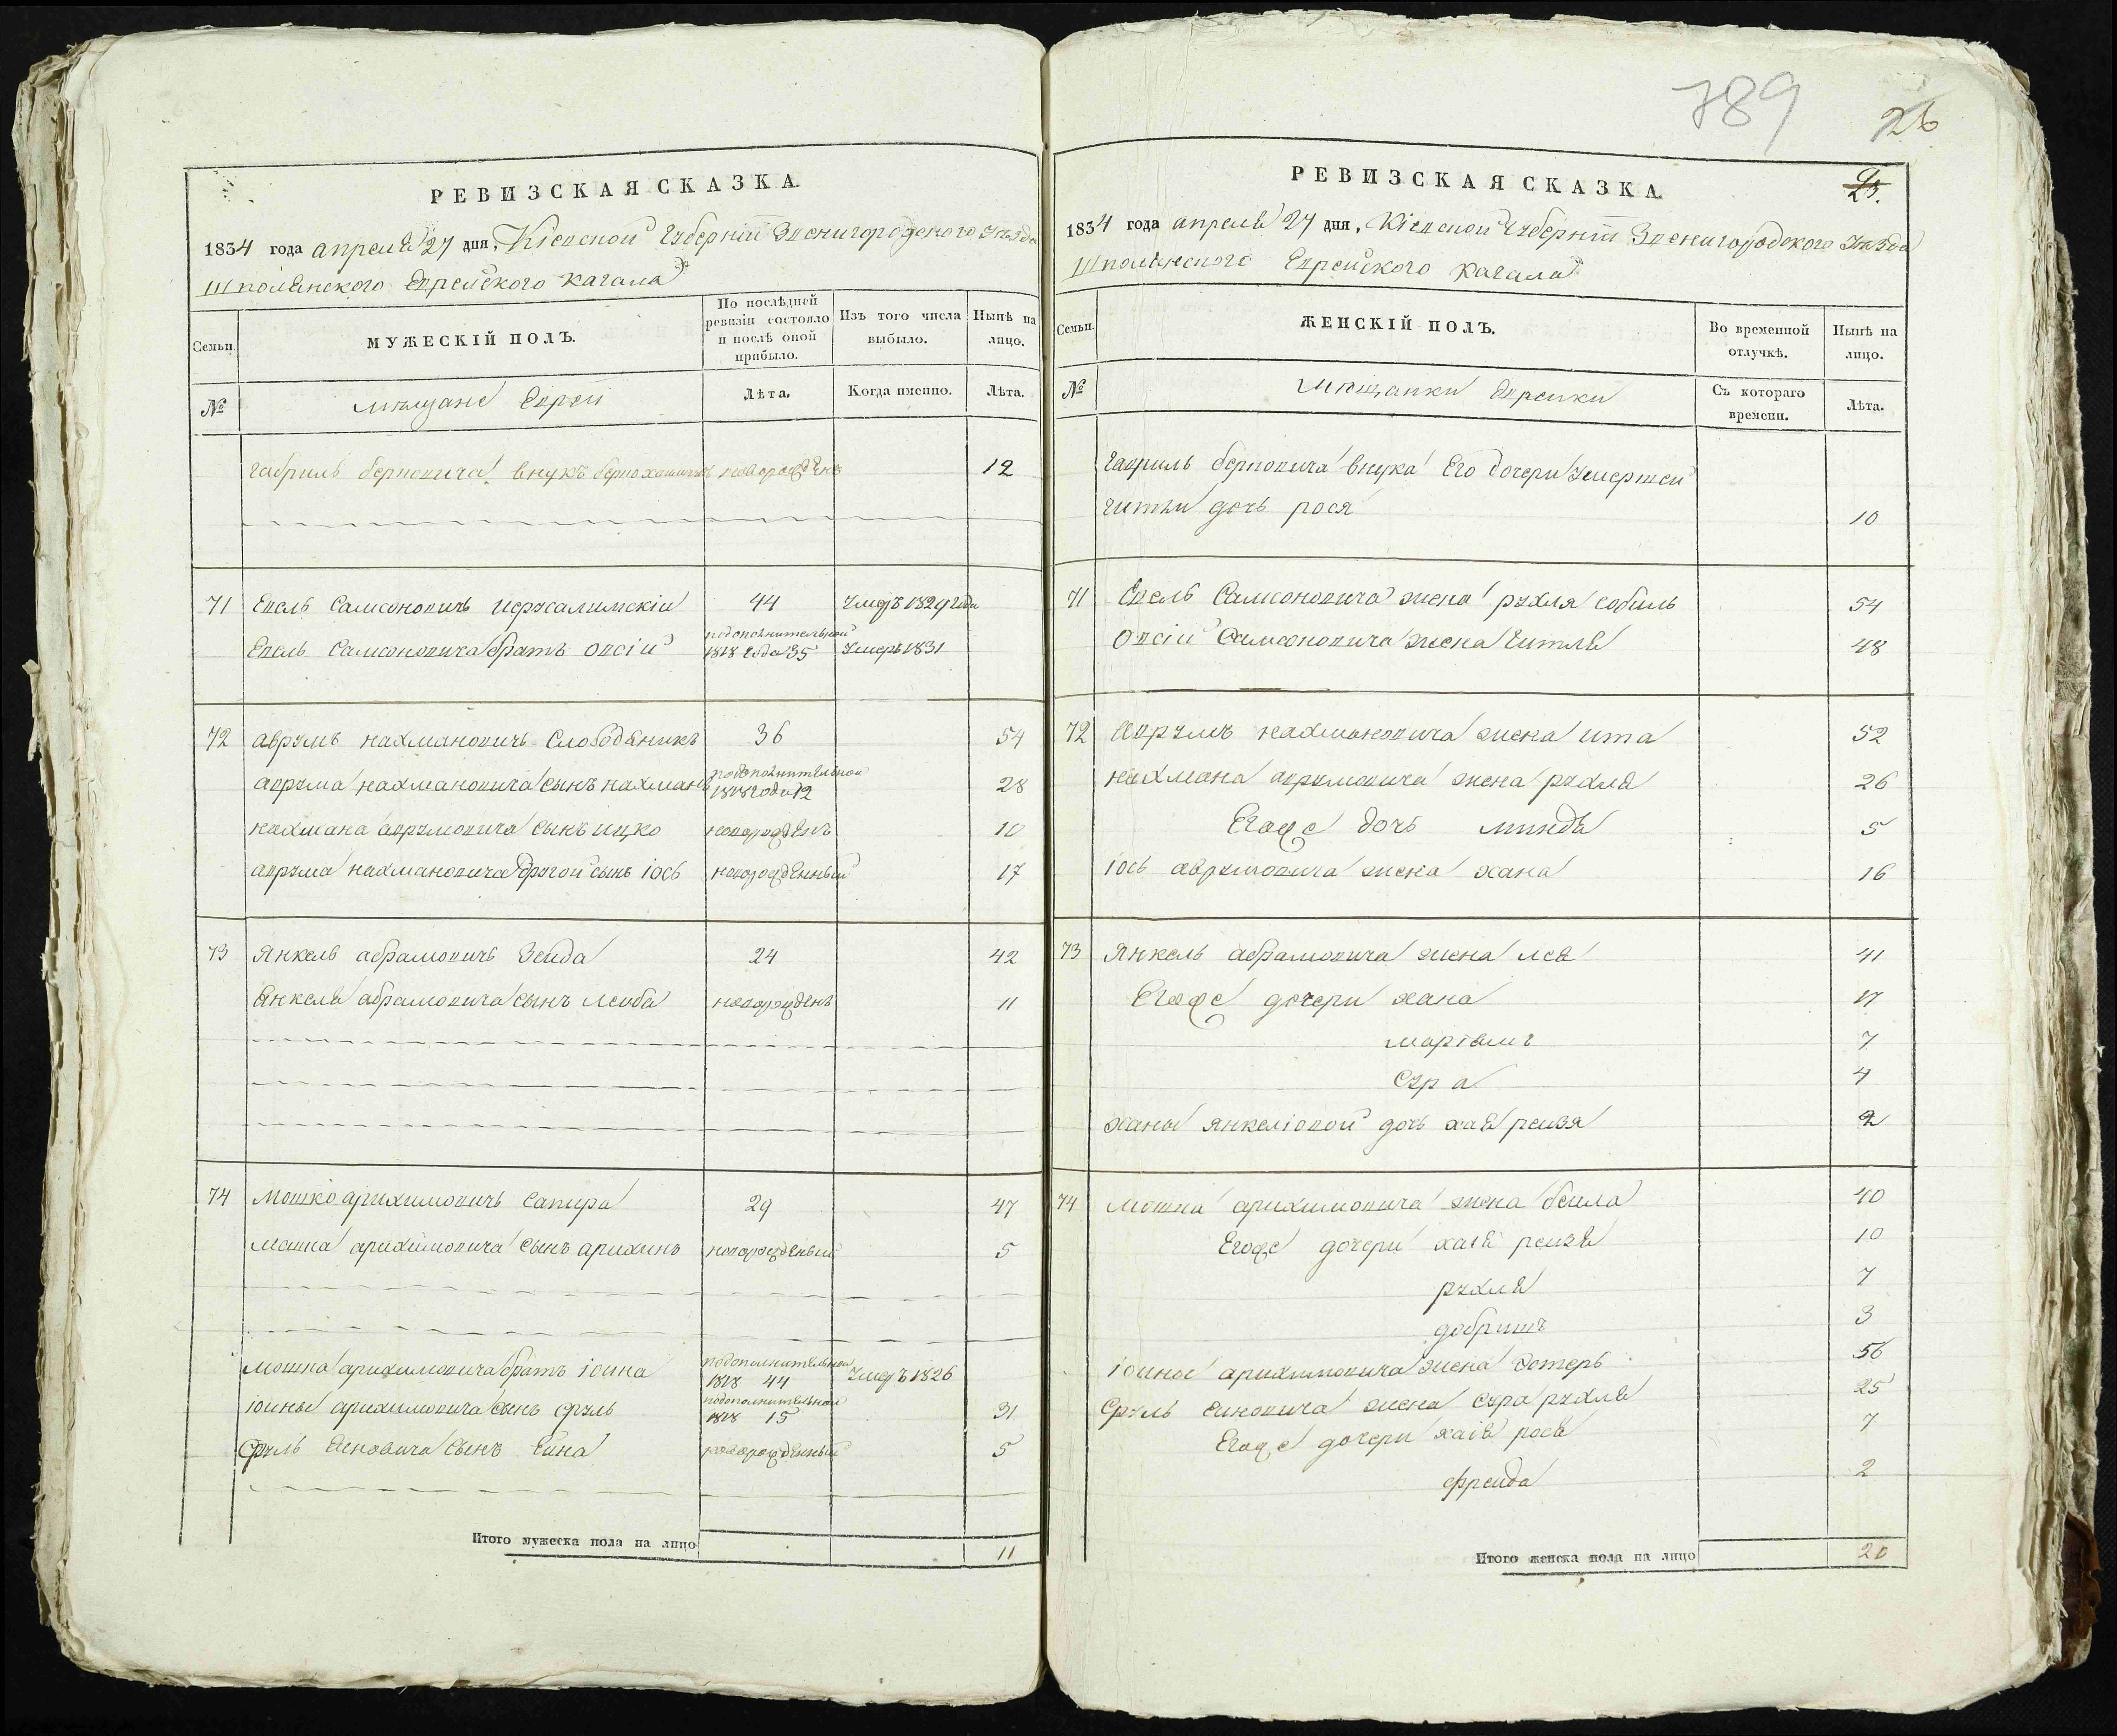 789
26
РЕВИЗСКАЯ СКАЗКА.
1834 года апреля 27 дня, Кіевской Губерніи Звенигородского уезда
Шполянского Еврейского кагала
Семьи.
МУЖЕСКІЙ ПОЛЪ.
По послѣдней ревизіи состояло и послѣ оной прибыло.
Изъ того числа выбыло.
Нынѣ на лицо.
№
мещане Евреи
Лѣта.
Когда именно.
Лѣта.
Габриль берковича внукъ новорожденъ 12
71 Евель Самсоновичь иерусалимскій 44 Умеръ 1829 года
Евель Самсоновича братъ овсій по дополнительной 1818 года 35 Умеръ 1831
72 аврумъ нахмановичь Слободяникъ 36 54
аврума нахмановича сынъ нахманъ по дополнительной 1818 года 12 28
нахмана аврумовича сынъ ицко новорожденъ 10
аврума нахмановича другой сынъ іось новорожденный 17
73 Янкель абрамовичь Зейда 24 42
Янкеля абрамовича сынъ лейба новорожденъ 11
74 Мошко арихимовичь Сапира 29 47
мошка арихимовича сынъ арихинъ новорожденый 5
мошка арихимовича братъ іоина по дополнительной 1818 44 Умеръ 1826
іоины арихимовича сынъ сруль по дополнительной 1818 15 31
Сруль Еиновича сынъ Еина новорожденный 5
Итого мужеска пола на лицо 11
РЕВИЗСКАЯ СКАЗКА.
25.
1834 года апреля 27 дня, Кіевской Губерніи Звенигородского уезда
Шполянского Еврейского кагала
Семьи.
ЖЕНСКІЙ ПОЛЪ.
Во временной отлучкѣ.
Нынѣ на лицо.
№
мещанки Еврейки
Съ котораго времени.
Лѣта.
Гавриль берковича внука Его дочери умершей
гитли дочь рося 10
71 Евель Самсоновича жена рухля собиль 54
Овсій Самсоновича жена гитля 48
72 Аврумъ нахмановича жена ита 52
нахмана аврумовича жена рухля 26
Егоже дочь миндя 5
іось аврумовича жена хана 16
73 Янкель абрамовича жена лея 41
Егоже дочери хана 17
маріямъ 7
Сура 4
ханы янкеліовой дочь хая рейзя 2
74 мошка арихимовича жена бейла 40
Егоже дочери хаія рейзя 10
рухля 7
добришъ 3
іоины арихимовича жена Эстеръ 56
Сруль еиновича жена сура рухля 25
Егоже дочери хаія рося 7
фрейда 2
Итого женска пола на лицо 20